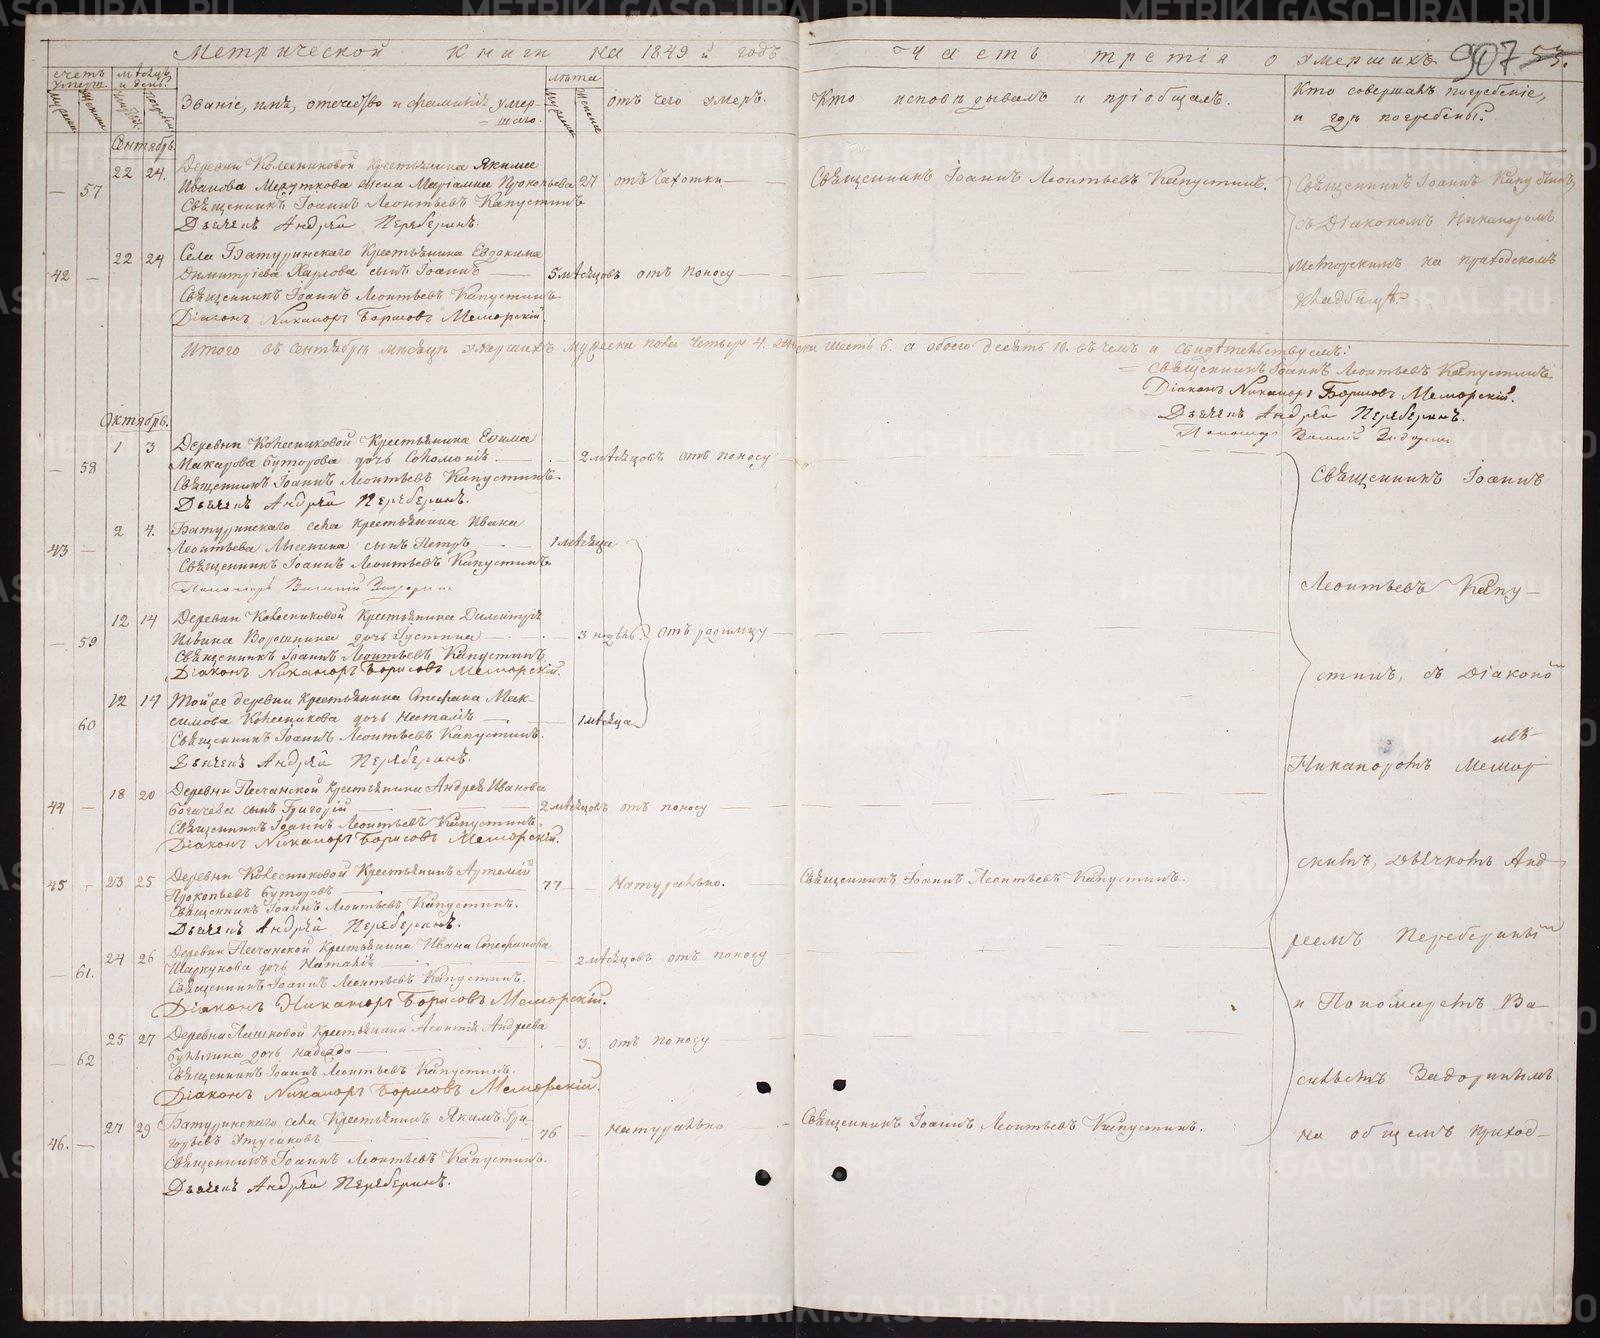 Метрической книги на 1849й годъ
Часть третія о умершихъ
907
53.
счетъ умерш.
мѣсяцъ и день.
Званіе, имя, отечество и фамилія умер-
шаго.
лѣта
отъ чего умеръ.
Кто исповѣдывалъ и пріобщалъ.
Кто совершалъ погребеніе,
и гдѣ погребены?
Сентябрь.
— 57 22 24. Деревни Колесниковой крестьянина Якима
Иванова Меркушкова жена Маріамна Прокопьева 27 отъ чахотки —
Священникъ Іоаннъ Леонтьевъ Капустинъ
Дьячекъ Андрей Переберинъ.
Священникъ Іоаннъ Леонтьевъ Капустинъ.
Священникъ Іоаннъ Капустинъ
съ Діакономъ Никаноромъ
Меморскимъ на приходскомъ
кладбищѣ.
42 — 22 24 Села Батуринскаго Крестьянина Евдокима
Димитріева Харлова сынъ Іоаннъ — 5 мѣсяцовъ отъ поносу —
Священникъ Іоаннъ Леонтьевъ Капустинъ.
Діаконъ Никаноръ Борисовъ Меморскій.
Итого въ Сентябрѣ мѣсяцѣ умершихъ мужеска пола четыре 4. женска шесть 6. а обоего десять 10. въ чемъ и свидѣтельствуемъ:
Священникъ Іоаннъ Леонтьевъ Капустинъ
Діаконъ Никаноръ Борисовъ Меморскій.
Дьячекъ Андрей Переберинъ.
Пономарь Василій Задоринъ
Октябрь.
— 58 1 3 Деревни Колесниковой Крестьянина Евдима
Макарова Буторова дочь Соломонія — 2 мѣсяцовъ отъ поносу
Священникъ Іоаннъ Леонтьевъ Капустинъ.
Дьячекъ Андрей Переберинъ.
43 — 2 4. Батуринскаго села крестьянина Ивана
Леонтьева Лысенина сынъ Петръ — 1 мѣсяца
Священникъ Іоаннъ Леонтьевъ Капустинъ
Пономарь Василій Задоринъ
— 59 12 14 Деревни Колесниковой Крестьянина Димитрія
Ильина Ворошнина дочь Іустина — 3 недѣль. отъ родимцу
Священникъ Іоаннъ Леонтьевъ Капустинъ.
Діаконъ Никаноръ Борисовъ Меморскій.
60 12 14 Тойже деревни Крестьянина Стефана Мак-
симова Колесникова дочь Наталія — 1 мѣсяца
Священникъ Іоаннъ Леонтьевъ Капустинъ.
Дьячекъ Андрей Переберинъ.
44 — 18 20 Деревни Песчанской крестьянина Андрея Иванова
Богачева сынъ Григорій — 2 мѣсяцовъ отъ поносу
Священникъ Іоаннъ Леонтьевъ Капустинъ.
Діаконъ Никаноръ Борисовъ Меморскій.
45 — 23 25 Деревни Колесниковой Крестьянинъ Артемій
Прокопьевъ Буторовъ — 77 — Натурально.
Священникъ Іоаннъ Леонтьевъ Капустинъ.
Дьячекъ Андрей Переберинъ.
Священникъ Іоаннъ Леонтьевъ Капустинъ.
— 61. 24 26 Деревни Песчанской Крестьянина Ивана Стефанова
Шаркунова дочь Наталія — 2 мѣсяцовъ отъ поносу
Священникъ Іоаннъ Леонтьевъ Капустинъ.
Діаконъ Никаноръ Борисовъ Меморскій.
— 62 25 27 Деревни Пашковой Крестьянина Леонтія Андреева
Булыгина дочь Надежда — 3. отъ поносу
Священникъ Іоаннъ Леонтьевъ Капустинъ.
Діаконъ Никаноръ Борисовъ Меморскій.
46. — 27 29 Батуринскаго села Крестьянинъ Якимъ Гри-
горьевъ Утусиковъ — 76 — натурально
Священникъ Іоаннъ Леонтьевъ Капустинъ.
Дьячекъ Андрей Переберинъ.
Священникъ Іоаннъ Леонтьевъ Капустинъ.
Священникъ Іоаннъ
Леонтьевъ Капу-
стинъ, съ Діакономъ
Никаноромъ Мемор-
скимъ, дьячкомъ Анд-
реемъ Переберинымъ
и Пономаремъ Ва-
сильемъ Задоринымъ
на общемъ приход-
METRIKI.GASO-URAL.RU